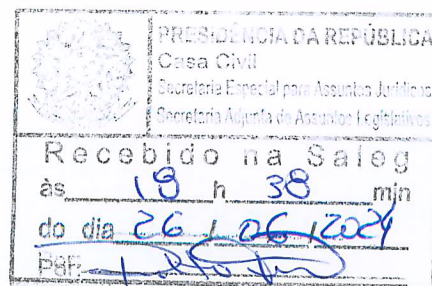 PRESIDÊNCIA DA REPÚBLICA
Casa Civil
Secretaria Especial para Assuntos Jurídicos
Secretaria Adjunta de Assuntos Legislativos
Recebido na Saleg
às 19 h 38 min
do dia 26 / 06 / 2024
por: